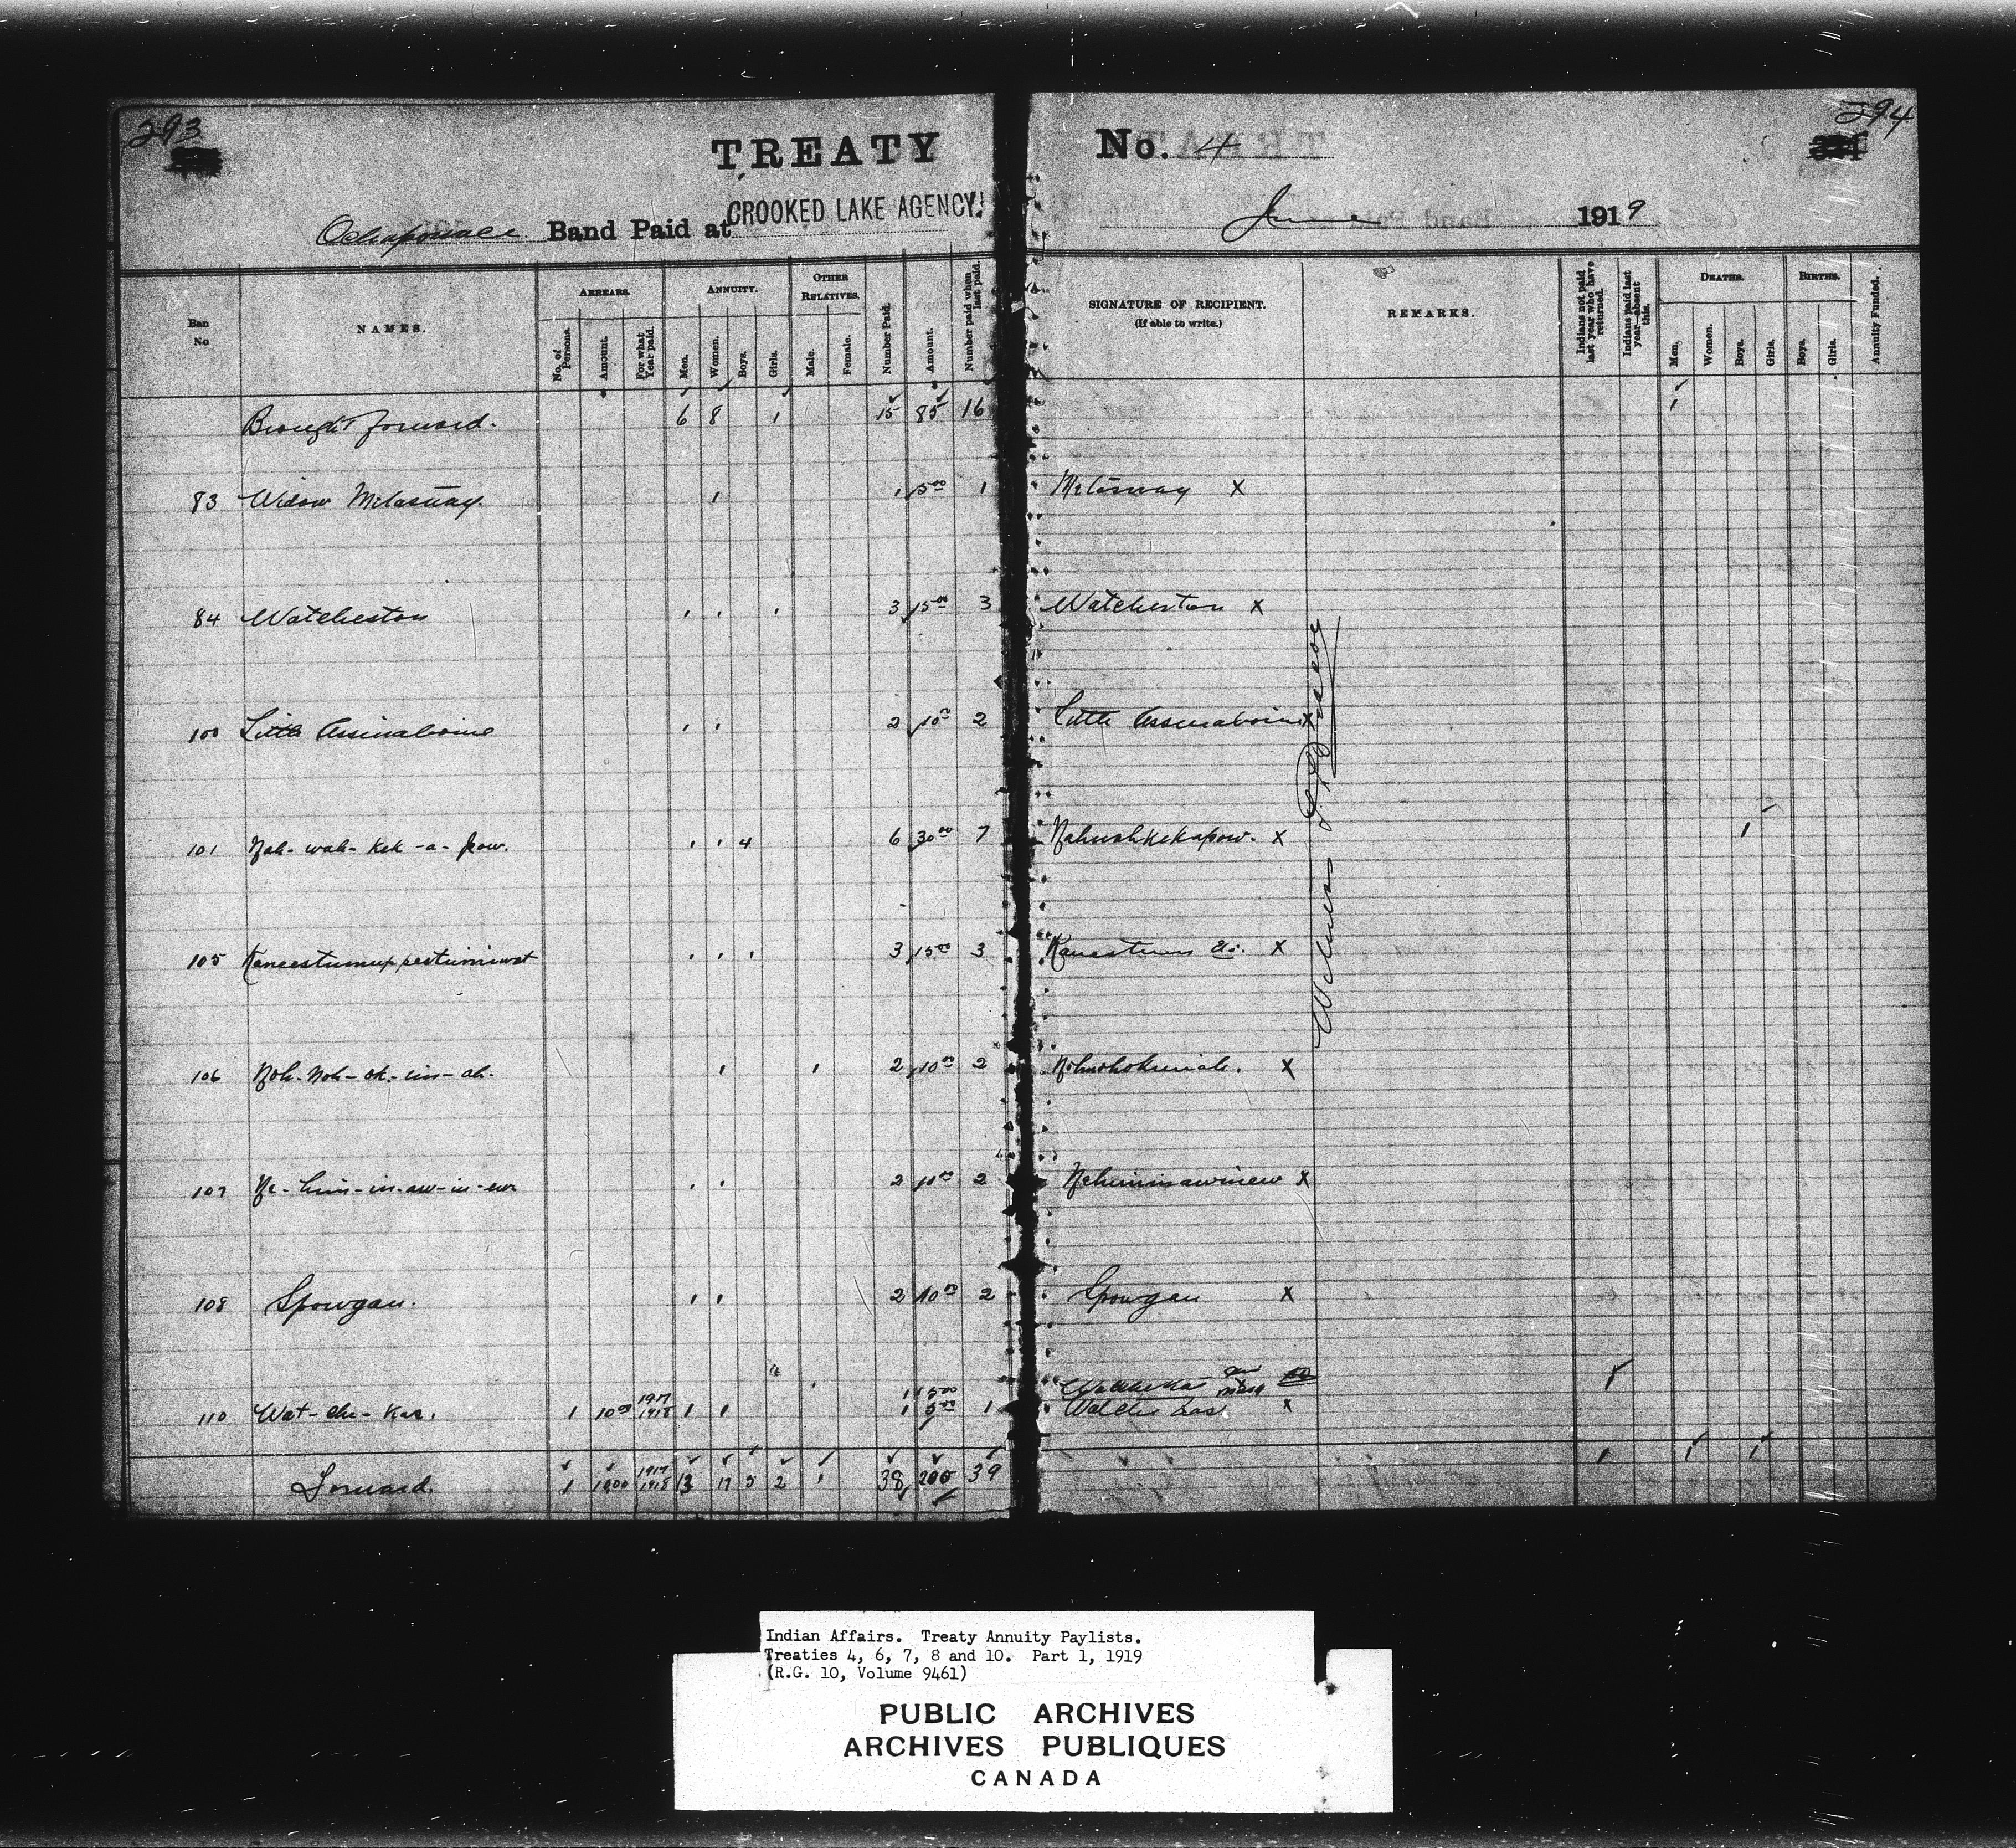 293
294
TREATY No. 4
Band Paid at CROOKED LAKE AGENCY. June 1919
ARREARS. ANNUITY. OTHER RELATIVES. DEATHS. BIRTHS.
Ban No NAMES. No. of Persons. Amount. For what Year paid. Men. Women. Boys. Girls. Male. Female. Number Paid. Amount. Number paid when last paid. SIGNATURE OF RECIPIENT. (If able to write.) REMARKS. Indians not paid last year who have returned. Indians paid last year—absent this. Men. Women. Boys. Girls. Boys. Girls. Annuity Funded.
Brought forward. 6 8 1 15 85 16 1
83 Widow 1 1 5 00 1 X
84 Watcheston 1 1 1 3 15 00 3 Watcheston X
100 Little Assinaboine 1 1 2 10 00 2 Little Assinaboine X
101 Nah-wah-kek-a-pow. 1 1 4 6 30 00 7 Nahwahkekapow. X 1
105 1 1 1 3 15 00 3 X
106 1 1 2 10 00 2 X
107 1 1 2 10 00 2 X
108 Spowgan. 1 1 2 10 00 2 Spowgan X
1 5 00
110 Wat-che-kas. 1 10 00 1917 1918 1 1 1 5 00 1 X
Forward. 1 10 00 1917 1918 13 17 5 2 1 38 200 39 1 1 1
Witness
Indian Affairs. Treaty Annuity Paylists.
Treaties 4, 6, 7, 8 and 10. Part 1, 1919
(R.G. 10, Volume 9461)
PUBLIC ARCHIVES
ARCHIVES PUBLIQUES
CANADA